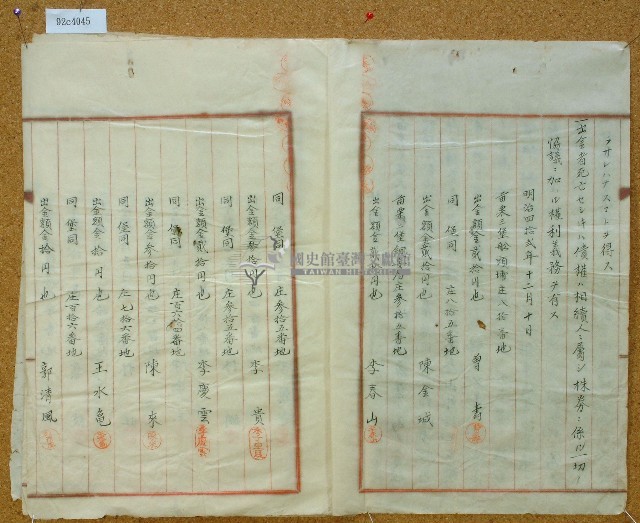 92c4045
ヲサレハナスコトヲ得ス
出金者死亡セシキハ債権ハ相續人ニ屬シ株券ニ係ル一切
協議ニ加ハル權利義務ヲ有ス
明治四拾弐年十二月十日
苗栗三堡船頭埔庄八拾番地
出金額金貳拾円也 曽 壽
同 堡同 庄八拾五番地
出金額金貳拾円也 陳金城
苗栗 堡 庄参拾五番地
出金額金 拾円也 李春山
同 堡同 庄参拾五番地
出金額金参拾円也 李 貴
同 堡同 庄参拾五番地
出金額金貳拾円也 李慶雲
同 堡同 庄百六 番地
出金額金参拾円也 陳 來
同 堡同 庄七拾六番地
出金額金拾円也 王水亀
同 堡同 庄百拾六番地
出金額金拾円也 郭清風
國史館臺灣文獻館
TAIWAN HISTORICA